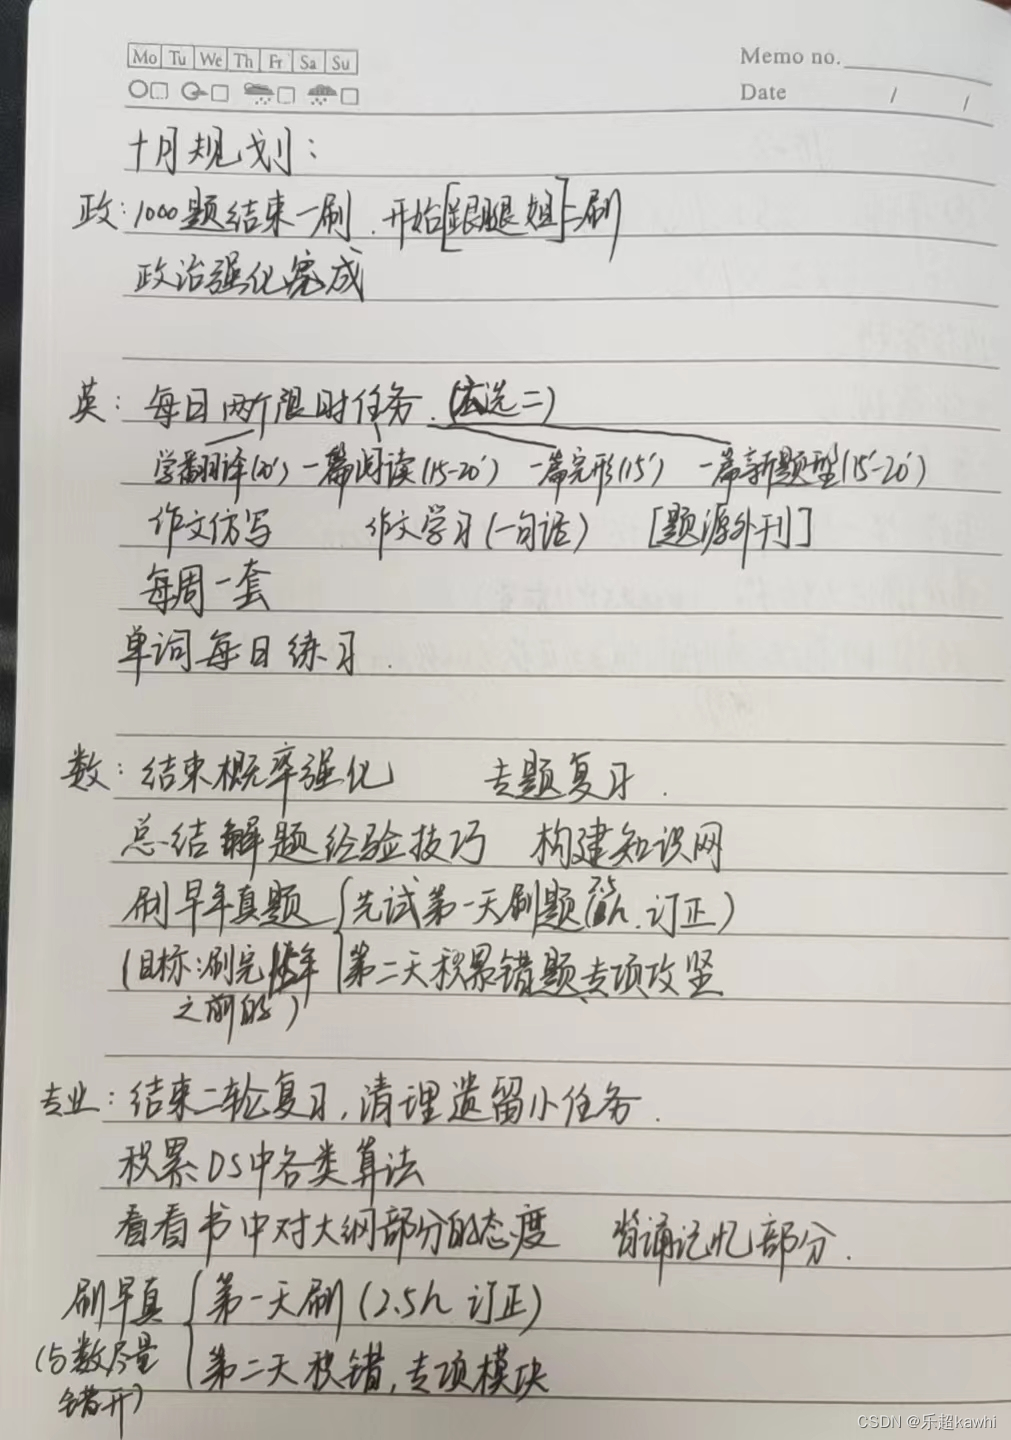 Mo Tu We Th Fr Sa Su
Memo no.
Date / /
十月规划：
政：1000题结束一刷．开始[银腿姐]二刷
政治强化完成
英：每日两个限时任务．(选二)
学翻译(20') 一篇阅读(15-20') 一篇完形(15') 一篇新题型(15'-20')
作文仿写 作文学习(一句话) [题源外刊]
每周一套
单词每日练习．
数：结束概率强化 专题复习．
总结解题经验技巧 构建知识网
刷早年真题 {先试第一天刷题(2.5h．订正)
(目标：刷完 年 第二天积累错题、专项攻坚
之前的)
专业：结束二轮复习，清理遗留小任务．
积累DS中各类算法
看看书中对大纲部分的态度 背诵记忆部分．
刷早真 {第一天刷(2.5h 订正)
(与数尽量 第二天积错，专项模块
错开)
CSDN @乐超kawhi